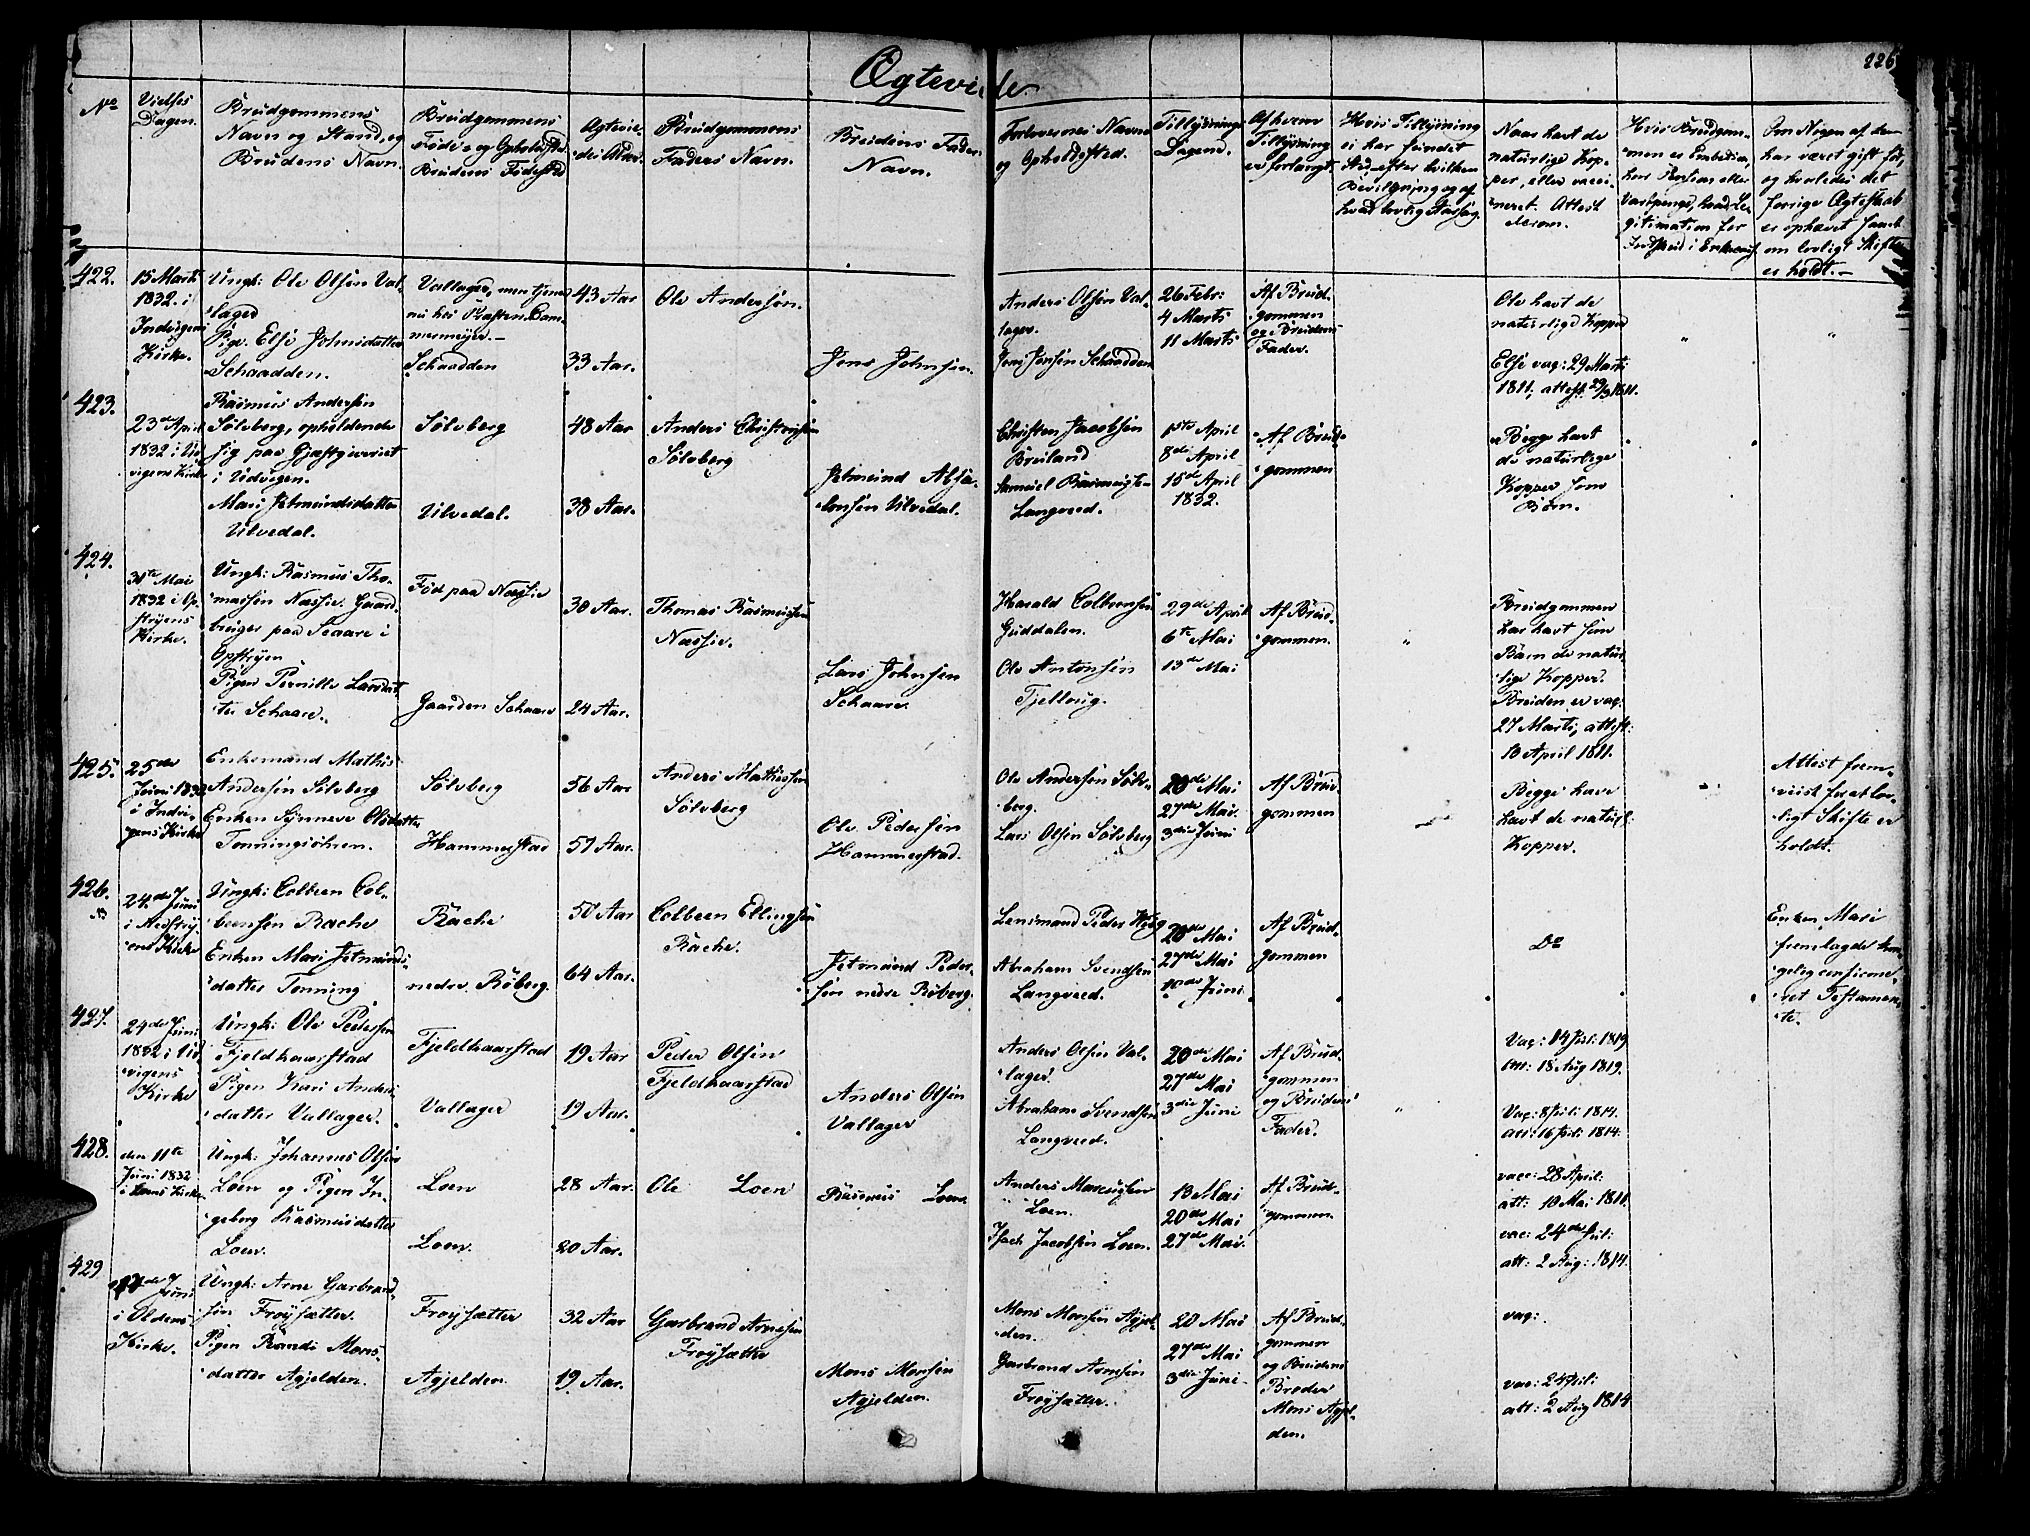 226
Ægteviede
No
Vielses
Dagen.
Brudgommens
Navn og Stand, og
Brudens Navn.
Brudgommens
Føde- og Opholdsted
Brudens Fødested
Ægtevie-
des Alder.
Brudgommens
Faders Navn.
Brudens Faders
Navn.
Forlovernes Navne
og Opholdsted.
Tillysnings
Dagene.
Af hvem
Tillysning
er forlangt.
Hvis Tillysning
ei har fundet
Sted, efter hvilken
Bevilgning og af
hvad lovlig Aarsag.
Naar havt de
naturlige Kop-
per, eller vacci-
neret. Attest
derom.
Hvis Brudgom-
men er
har Pension eller
Vartpenge, hvad Le-
gitimation for
Om Nogen af dem
har været gift før,
og hvorledes det
forrige Ægteskab
er ophævet samt
om lovligt Skifte
er holdt.-
422.
15 Marts
1832. i
Indvigens
Kirke.
Ungk: Ole Olsen Val-
lager
Pige. Else Johnsdatter
Schaadden.
Vallager, men tjener
nu hos Præsten Dam-
mermejer.-
Schaadden
43 Aar
33 Aar.
Ole Andersøn.
Jens Johnsen.
Anders Olsen Val-
lager.
Jens Jensen Schaadden
26 Febr:
4 Marts
11 Marts
Af Brud-
gommen
og Brudens
Fader.
Ole havt de
naturlige Kopper
Else vac: 29 Marts
1811, attest 29/3 1811.
423.
23de April
1832 i Ud-
vigens Kirke
Rasmus Andersen
Sølvberg, opholdende
sig paa Gjæstgiveriet
i Udvigen.
Mari Jetmundsdatter
Ulvedal.
Sølvberg
Ulvedal.
48 Aar
38 Aar.
Anders Christensen
Sølvberg
Jetmund Absa-
lonsen Ulvedal.
Christen Jacobsen
Breiland
Samuel Rasmusen
Langved.
1ste April
8de April
15de April
1832.
Af Brud-
gommen
Begge havt
de naturlige
Kopper som
Børn.
424.
31te Mai
1832 i Op-
stryens
Kirke.
Ungk: Rasmus Tho-
massen Næssie. Gaard-
bruger paa Scaare i
Opstryen
Pigen Pernille Larsdat-
ter Schaare.
Fød paa Næssie
Gaarden Schaare
30 Aar.
24 Aar.
Thomas Rasmussen
Næssie.
Lars Johnsen
Schaare.
Harald Colbensen
Guddalen.
Ole Antonsen
Tjelloug.
29de April
6te Mai
13de Mai
Af Brud-
gommen.
Brudgommen
har havt som
Barn de natur-
lige Kopper.
Bruden er vac:
27 Marts, attest:
18 April 1811.
425.
25de
Juni 1832
i Indvi-
gens Kirke
Enkemand Mathis
Andersen Sølvberg
Enken Synneve Olsdatter
Tonningsøhren.
Sølvberg
Hammerstad
56 Aar
57 Aar.
Anders Mathissen
Sølvberg
Ole Pedersen
Hammerstad.
Ole Andersen Sølv-
berg.
Lars Olsen Sølvberg
20de Mai
27de Mai.
3die Juni
Af Brud-
gommen
Begge have
havt de naturl:
Kopper.
Attest frem-
viist for at lov-
ligt Skifte er
holdt.
426.
24de Juni
i Nedstry-
ens Kirke
Ungk: Colbeen Col-
beensen Rache
Enken Mari Jetmunds-
datter Tonning
Rache
nedre Røberg.
50 Aar
64 Aar.
Colbeen Ellingsen
Rache.
Jetmund Peder-
sen nedre Røberg.
Lensmand Peder
Abraham Svendsen
Langved.
20de Mai
27de Mai
10de Juni
Af Brud-
gommen
Do
Enken Mari
fremlagde kon-
gelig confirme-
ret Testamen-
te.
427.
24de Juni
1832 i Ud-
vigens
Kirke
Ungk: Ole Pedersen
Fjeldhaarstad
Pigen Kari Anders-
datter Vallager.
Fjeldhaarstad
Vallager
19 Aar
19 Aar.
Peder Olsen
Fjeldhaarstad
Anders Olsen
Vallager
Anders Olsen Val-
lager.
Abraham Svendsen
Langved.
20de Mai
27de Mai
3die Juni
Af Brud-
gommen
og Brudens
Fader.
Vac: 14 Juli: 1819
att: 18 Aug 1819.
Vac: 8 Juli: 1814.
att: 16 Juli: 1814.
428.
den 11te
Juni 1832
i Loens Kirke
Ungk: Johannes Olsen
Loen og Pigen In-
geborg Rasmusdatter
Loen.
Loen
Loen.
28 Aar.
20 Aar.
Ole Loen
Rasmus Loen
Anders Marcusen
Loen.
Isach Jacobsen Loen.
13 Mai
20de Mai
27de Mai.
Af Brud-
gommen.
vac: 28 April:
att: 10 Mai 1811.
vac: 24de Juli:
att: 2 Aug: 1814.
429
Juni
i Oldens
Kirke.
Ungk: Arne Garbrand-
sen Frøysætter.
Pigen Randi Mons-
datter Agjelden.
Frøysætter
Agjelden.
32 Aar
19 Aar.
Garbrand Arnesen
Frøysætter
Mons Monsen
Agjelden.
Mons Monsen Agjel-
den.
Garbrand Arnesen
Frøysætter.
20 Mai
27de Mai
3die Juni
Af Brud-
gommen
og Brudens
Broder
Mons Agjel-
den.
vac:
vac: 24 Juli:
att: 2 Aug 1814